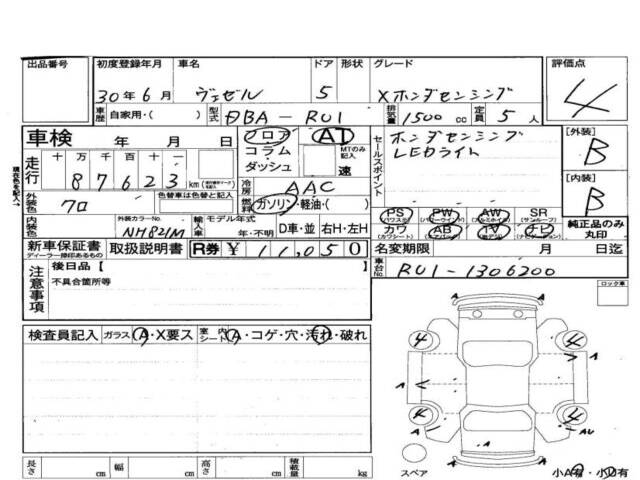 出品番号 初度登録年月 車名 ドア 形状 グレード 評価点
30年6月 ヴェゼル 5 Xホンダセンシング 4
車歴 自家用・( ) 型式 DBA-RU1 排気量 1500 cc 定員 5 人
車検 年 月 日 フロア AT セールスポイント ホンダセンシング [外装]
コラム MTのみ記入 LEDライト B
走行 十万千百十一 ダッシュ 速
87623 km 冷房 AAC [内装]
外装色 クロ 色替車は色替と記入 燃料 ガソリン・軽油・( ) B
PS PW AW SR
(パワステ) (パワーウィンド) (アルミホイル) (サンルーフ)
内装色 外装カラーNo. NH821M 輸入車 モデル年式 年・不明 D車・並 右H・左H カワ AB TV ナビ 純正品のみ丸印
(カワシート) (エアバック) (テレビ) (ナビゲーション)
新車保証書 取扱説明書 R券 ¥ 11,050 名変期限 月 日迄
ディーラー捺印あるもの
車台No. RU1-1306200
注意事項 後日品【
不具合箇所等
ロック車
検査員記入 ガラス A・X要ス 室内シート A・コゲ・穴・汚れ・破れ
4 4 A
A A
4 4 A AU
スペア
長さ cm 幅 cm 高さ cm 積載量 kg 小A有・小U有
現在色を記入→